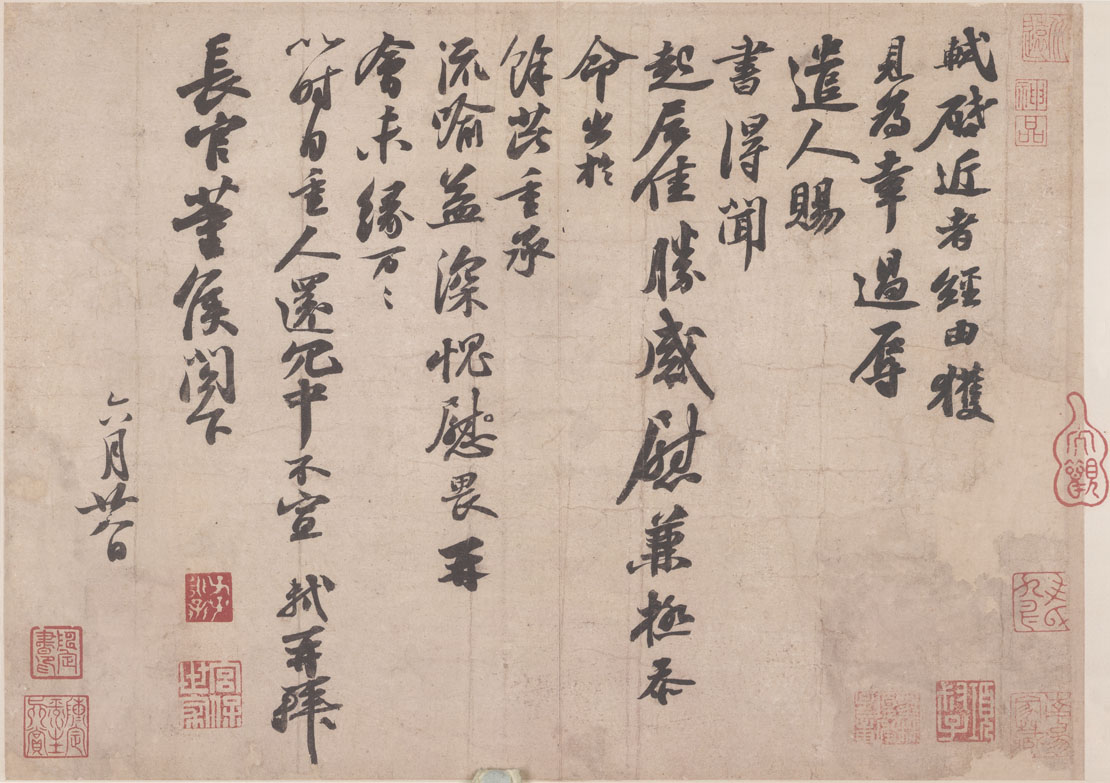 軾啓近者經由獲
見為幸過辱
遣人賜
書得聞
起居佳勝感慰兼極忝
命出於
餘芘重承
流喻益深愧慰畏再
會未緣万〻
以时自重人還冗中不宣 軾再拜
長官董侯閣下
六月廿八日
神品
宮保世家